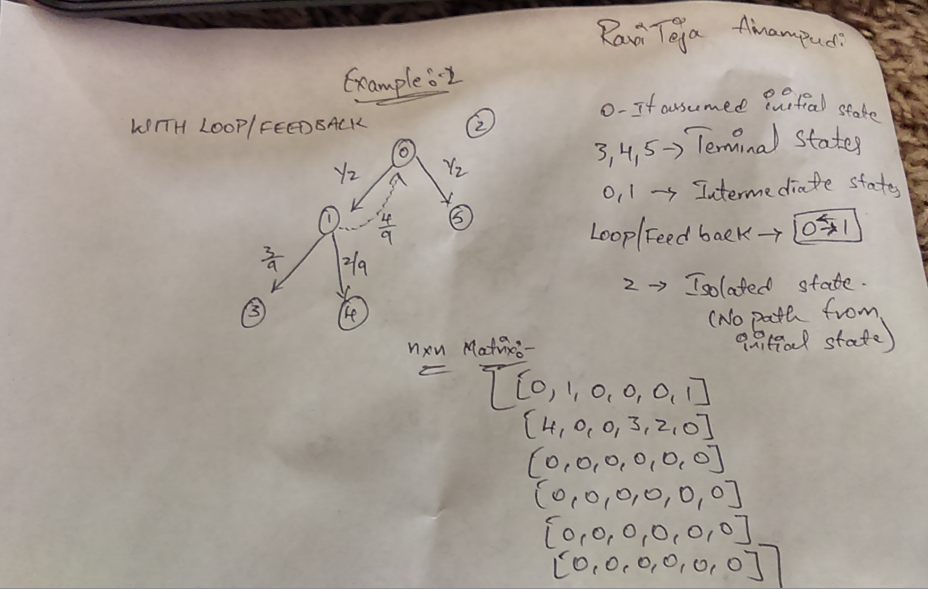 Ravi Teja Ainampudi
Example:-2
WITH LOOP/FEEDBACK
2
0
1/2
1/2
1
4/9
5
3/9
2/9
3
4
0 - It assumed initial state
3,4,5 → Terminal States
0,1 → Intermediate states
Loop/Feed back → 0⇆1
2 → Isolated state.
(No path from
initial state)
nxn Matrix:-
[[0, 1, 0, 0, 0, 1]
[4, 0, 0, 3, 2, 0]
[0, 0, 0, 0, 0, 0]
[0, 0, 0, 0, 0, 0]
[0, 0, 0, 0, 0, 0]
[0, 0, 0, 0, 0, 0]]